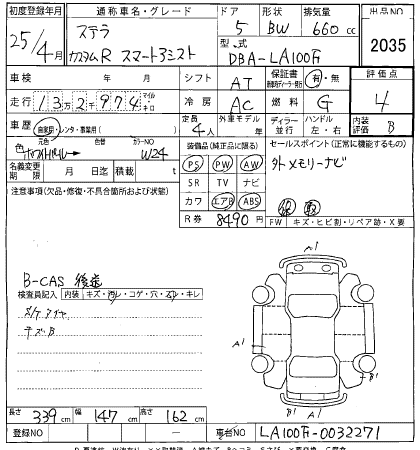 初度登録年月 通称車名・グレード ドア 形状 排気量 出品NO
25/4月 ステラ カスタムR スマートアシスト 5 BW 660cc 2035
型式 DBA-LA100F
車検 年 月 シフト AT 保証書 有・無 評価点
走行 13万2千974 マイル キロ 冷房 AC 燃料 G 4
車歴 自家用・レンタ・事業用( ) 定員 4人 外車モデル 年 ディーラー 並行 ハンドル 左・右 内装評価 B
色 元色 パール 色替 カラーNO W24
装備品(純正品に限る) セールスポイント(正常に機能するもの)
名義変更期限 月 日迄 積載 t PS PW AW 外メモリーナビ
注意事項(欠品・修復・不具合箇所および状態) SR TV ナビ
カワ エアB ABS
R券 8490円 FW キズ・ヒビ割・リペア跡・X要
B-CAS 後送
検査員記入 内装 キズ・汚レ・コゲ・穴・スレ・キレ
A1
A1
A1
B1
長さ 339cm 幅 147cm 高さ 162cm
登録NO 車台NO LA100F-0032271